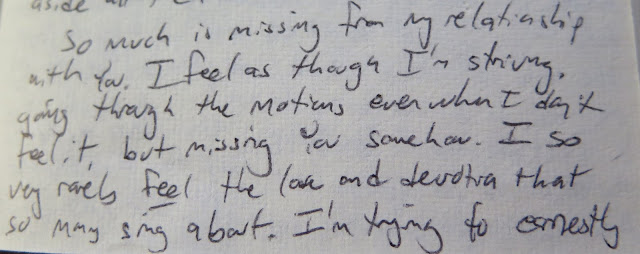 aside
So much is missing from my relationship
with You. I feel as though I'm striving,
going through the motions even when I don't
feel it, but missing You somehow. I so
very rarely feel the love and devotion that
so many sing about. I'm trying to earnestly